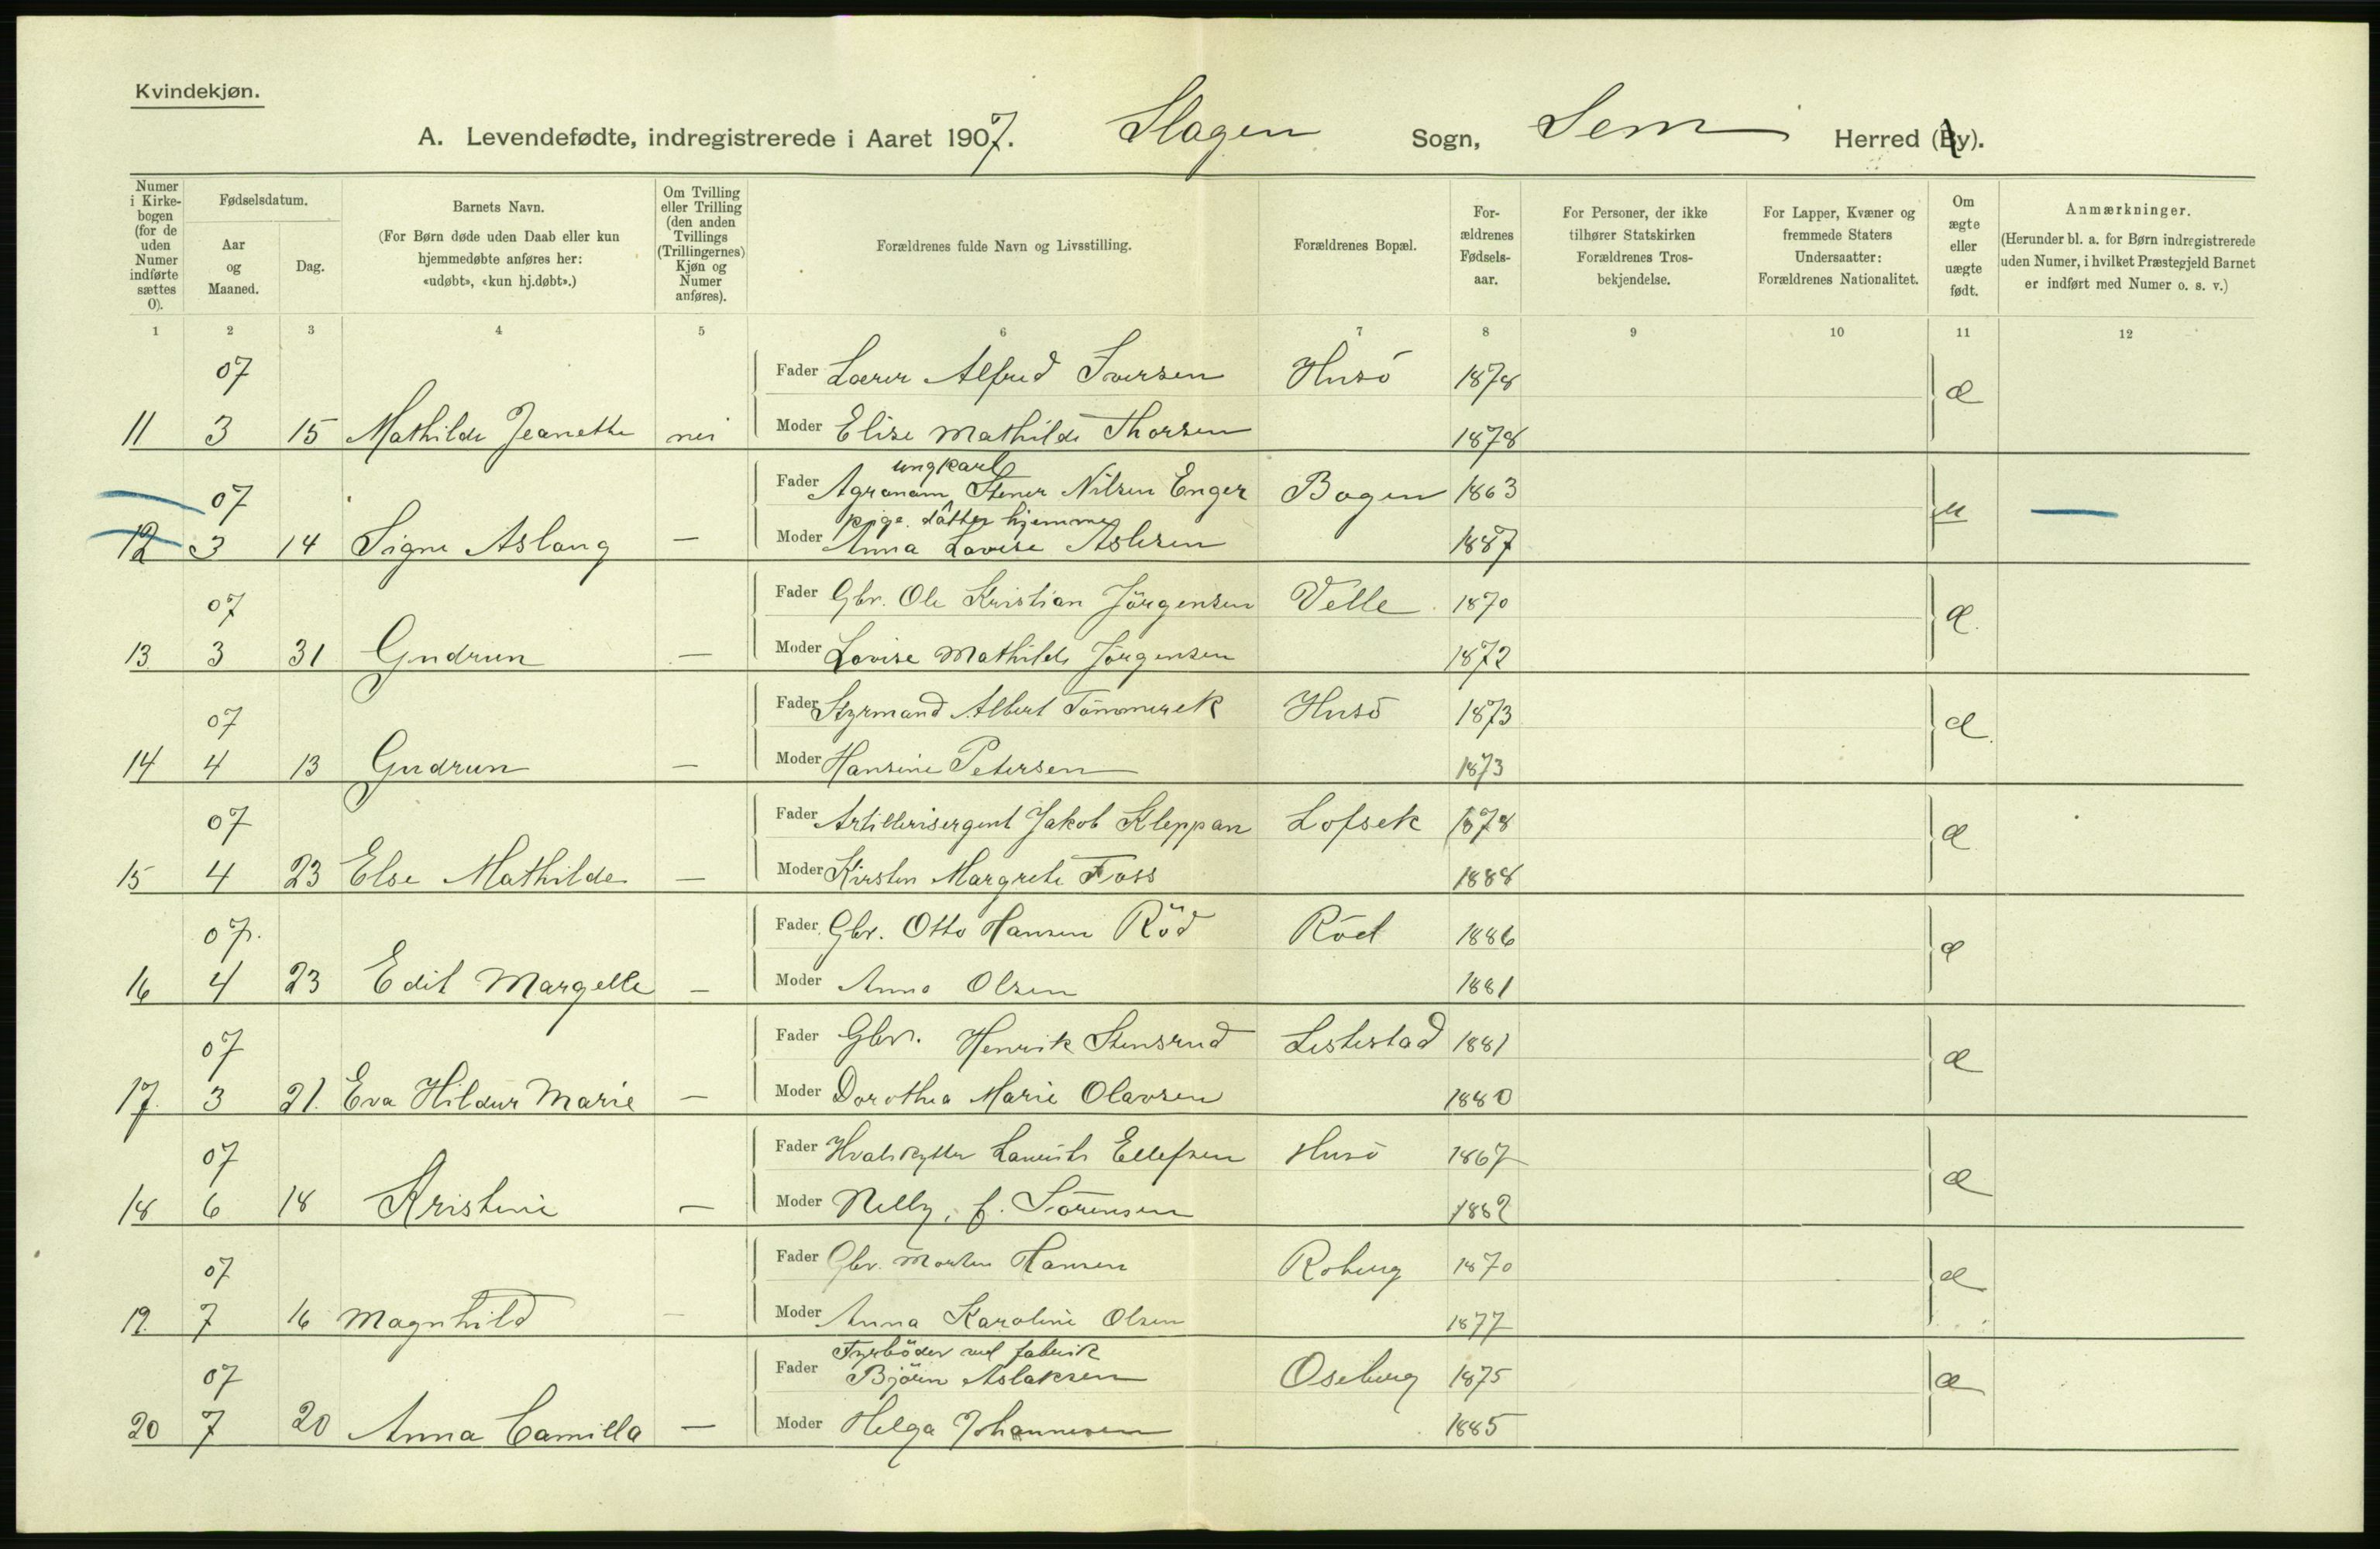 Kvindekjøn.
A. Levendefødte, indregistrerede i Aaret 1907. Slagen Sogn, Sem Herred (By).
Numer i Kirkebogen (for de uden Numer indførte sættes 0).
Fødselsdatum.
Aar og Maaned.
Dag.
Barnets Navn.
(For Børn døde uden Daab eller kun hjemmedøbte anføres her: «udøbt», «kun hj.døbt».)
Om Tvilling eller Trilling (den anden Tvillings (Trillingernes) Kjøn og Numer anføres).
Forældrenes fulde Navn og Livsstilling.
Forældrenes Bopæl.
Forældrenes Fødselsaar.
For Personer, der ikke tilhører Statskirken Forældrenes Trosbekjendelse.
For Lapper, Kvæner og fremmede Staters Undersaatter: Forældrenes Nationalitet.
Om ægte eller uægte født.
Anmærkninger.
(Herunder bl. a. for Børn indregistrerede uden Numer, i hvilket Præstegjeld Barnet er indført med Numer o. s. v.)
1 2 3 4 5 6 7 8 9 10 11 12
07 Fader Lærer Alfred Iversen Husö 1878 æ
11 3 15 Mathilde Jeanette nei Moder Elise Mathilde Thorsen 1878
ungkarl
07 Fader Agronom Stener Nilsen Enger Bogen 1863 u —
pige. datter hjemme
12 3 14 Signe Aslaug — Moder Anna Lovise Aslesen 1887
07 Fader Gbr. Ole Kristian Jörgensen Velle 1870 æ.
13 3 31 Gudrun — Moder Lovise Mathilde Jörgensen 1872
07 Fader Styrmand Albert Tömmerek Husö 1873 æ.
14 4 13 Gudrun — Moder Hansine Petersen 1873
07 Fader Artillerisergent Jakob Kleppan Lofsek 1878 æ
15 4 23 Else Mathilde — Moder Kirsten Margrete Foss 1888
07. Fader Gbr. Otto Hansen Röd Röd 1886 æ
16 4 23 Edit Margelle — Moder Anna Olsen 1881
07 Fader Gbr. Henrik Stensrud Lestestad 1881 æ
17. 3 21. Eva Hildur Marie — Moder Dorothea Marie Olavsen 1880
07 Fader Hvalskytter Lauritz Ellefsen Husö 1867 æ
18 6 18 Kristine — Moder Nelly, f. Sörensen 1882
07 Fader Gbr. Morten Hansen Roberg 1870 æ
19. 7 16 Magnhild — Moder Anna Karoline Olsen 1877
Fyrböder ved fabrik
07 Fader Björn Aslaksen Oseberg 1875 æ
20 7 20 Anna Camilla — Moder Helga Johannesen 1885